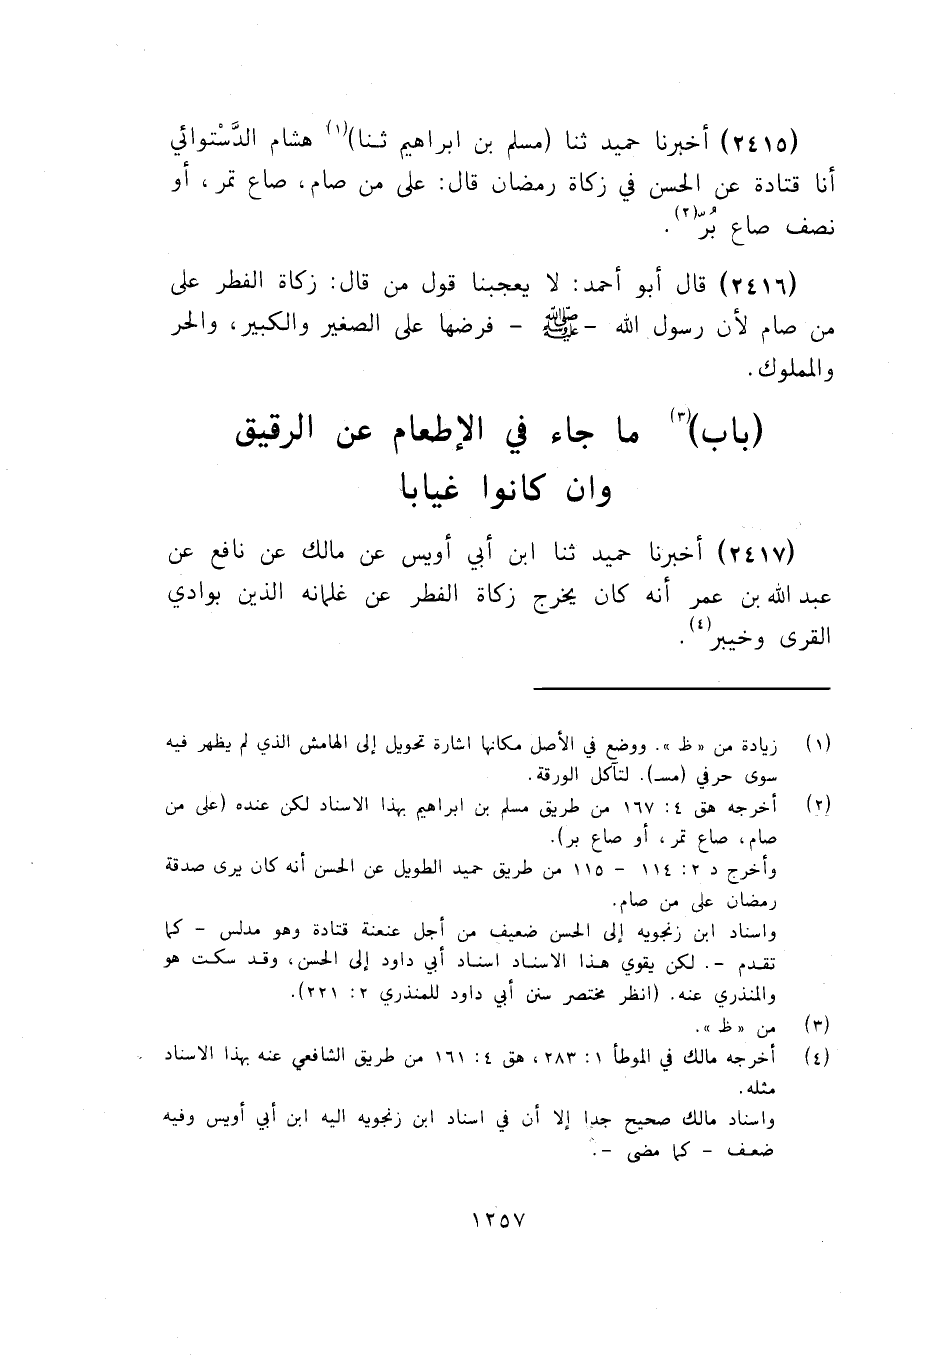 (٢٤١٥) أخبرنا حميد ثنا (مسلم بن ابراهيم ثـنا)(١) هشام الدَّسْتوائي
أنا قتادة عن الحسن في زكاة رمضان قال: على من صام، صاع تمر، أو
نصف صاع بُرّ(٢).
(٢٤١٦) قال أبو أحمد: لا يعجبنا قول من قال: زكاة الفطر على
من صام لأن رسول الله -ﷺ - فرضها على الصغير والكبير، والحر
والمملوك.
(باب)(٣) ما جاء في الإطعام عن الرقيق
وان كانوا غيابا
(٢٤١٧) أخبرنا حميد ثنا ابن أبي أويس عن مالك عن نافع عن
عبد الله بن عمر أنه كان يخرج زكاة الفطر عن غلمانه الذين بوادي
القرى وخيبر(٤).
(١) زيادة من « ظ ». ووضع في الأصل مكانها اشارة تحويل إلى الهامش الذي لم يظهر فيه
سوى حرفي (مسـ). لتآكل الورقة.
(٢) أخرجه هق ٤: ١٦٧ من طريق مسلم بن ابراهيم بهذا الاسناد لكن عنده (على من
صام، صاع تمر، أو صاع بر).
وأخرج د ٢: ١١٤ - ١١٥ من طريق حميد الطويل عن الحسن أنه كان يرى صدقة
رمضان على من صام.
واسناد ابن زنجويه إلى الحسن ضعيف من أجل عنعنة قتادة وهو مدلس - كما
تقدم -. لكن يقوي هذا الاسناد اسناد أبي داود إلى الحسن، وقد سكت هو
والمنذري عنه. (انظر مختصر سنن أبي داود للمنذري ٢: ٢٢١).
(٣) من « ظ ».
(٤) أخرجه مالك في الموطأ ١: ٢٨٣، هق ٤: ١٦١ من طريق الشافعي عنه بهذا الاسناد
مثله.
واسناد مالك صحيح جدا إلا أن في اسناد ابن زنجويه اليه ابن أبي أويس وفيه
ضعف - كما مضى -.
١٢٥٧